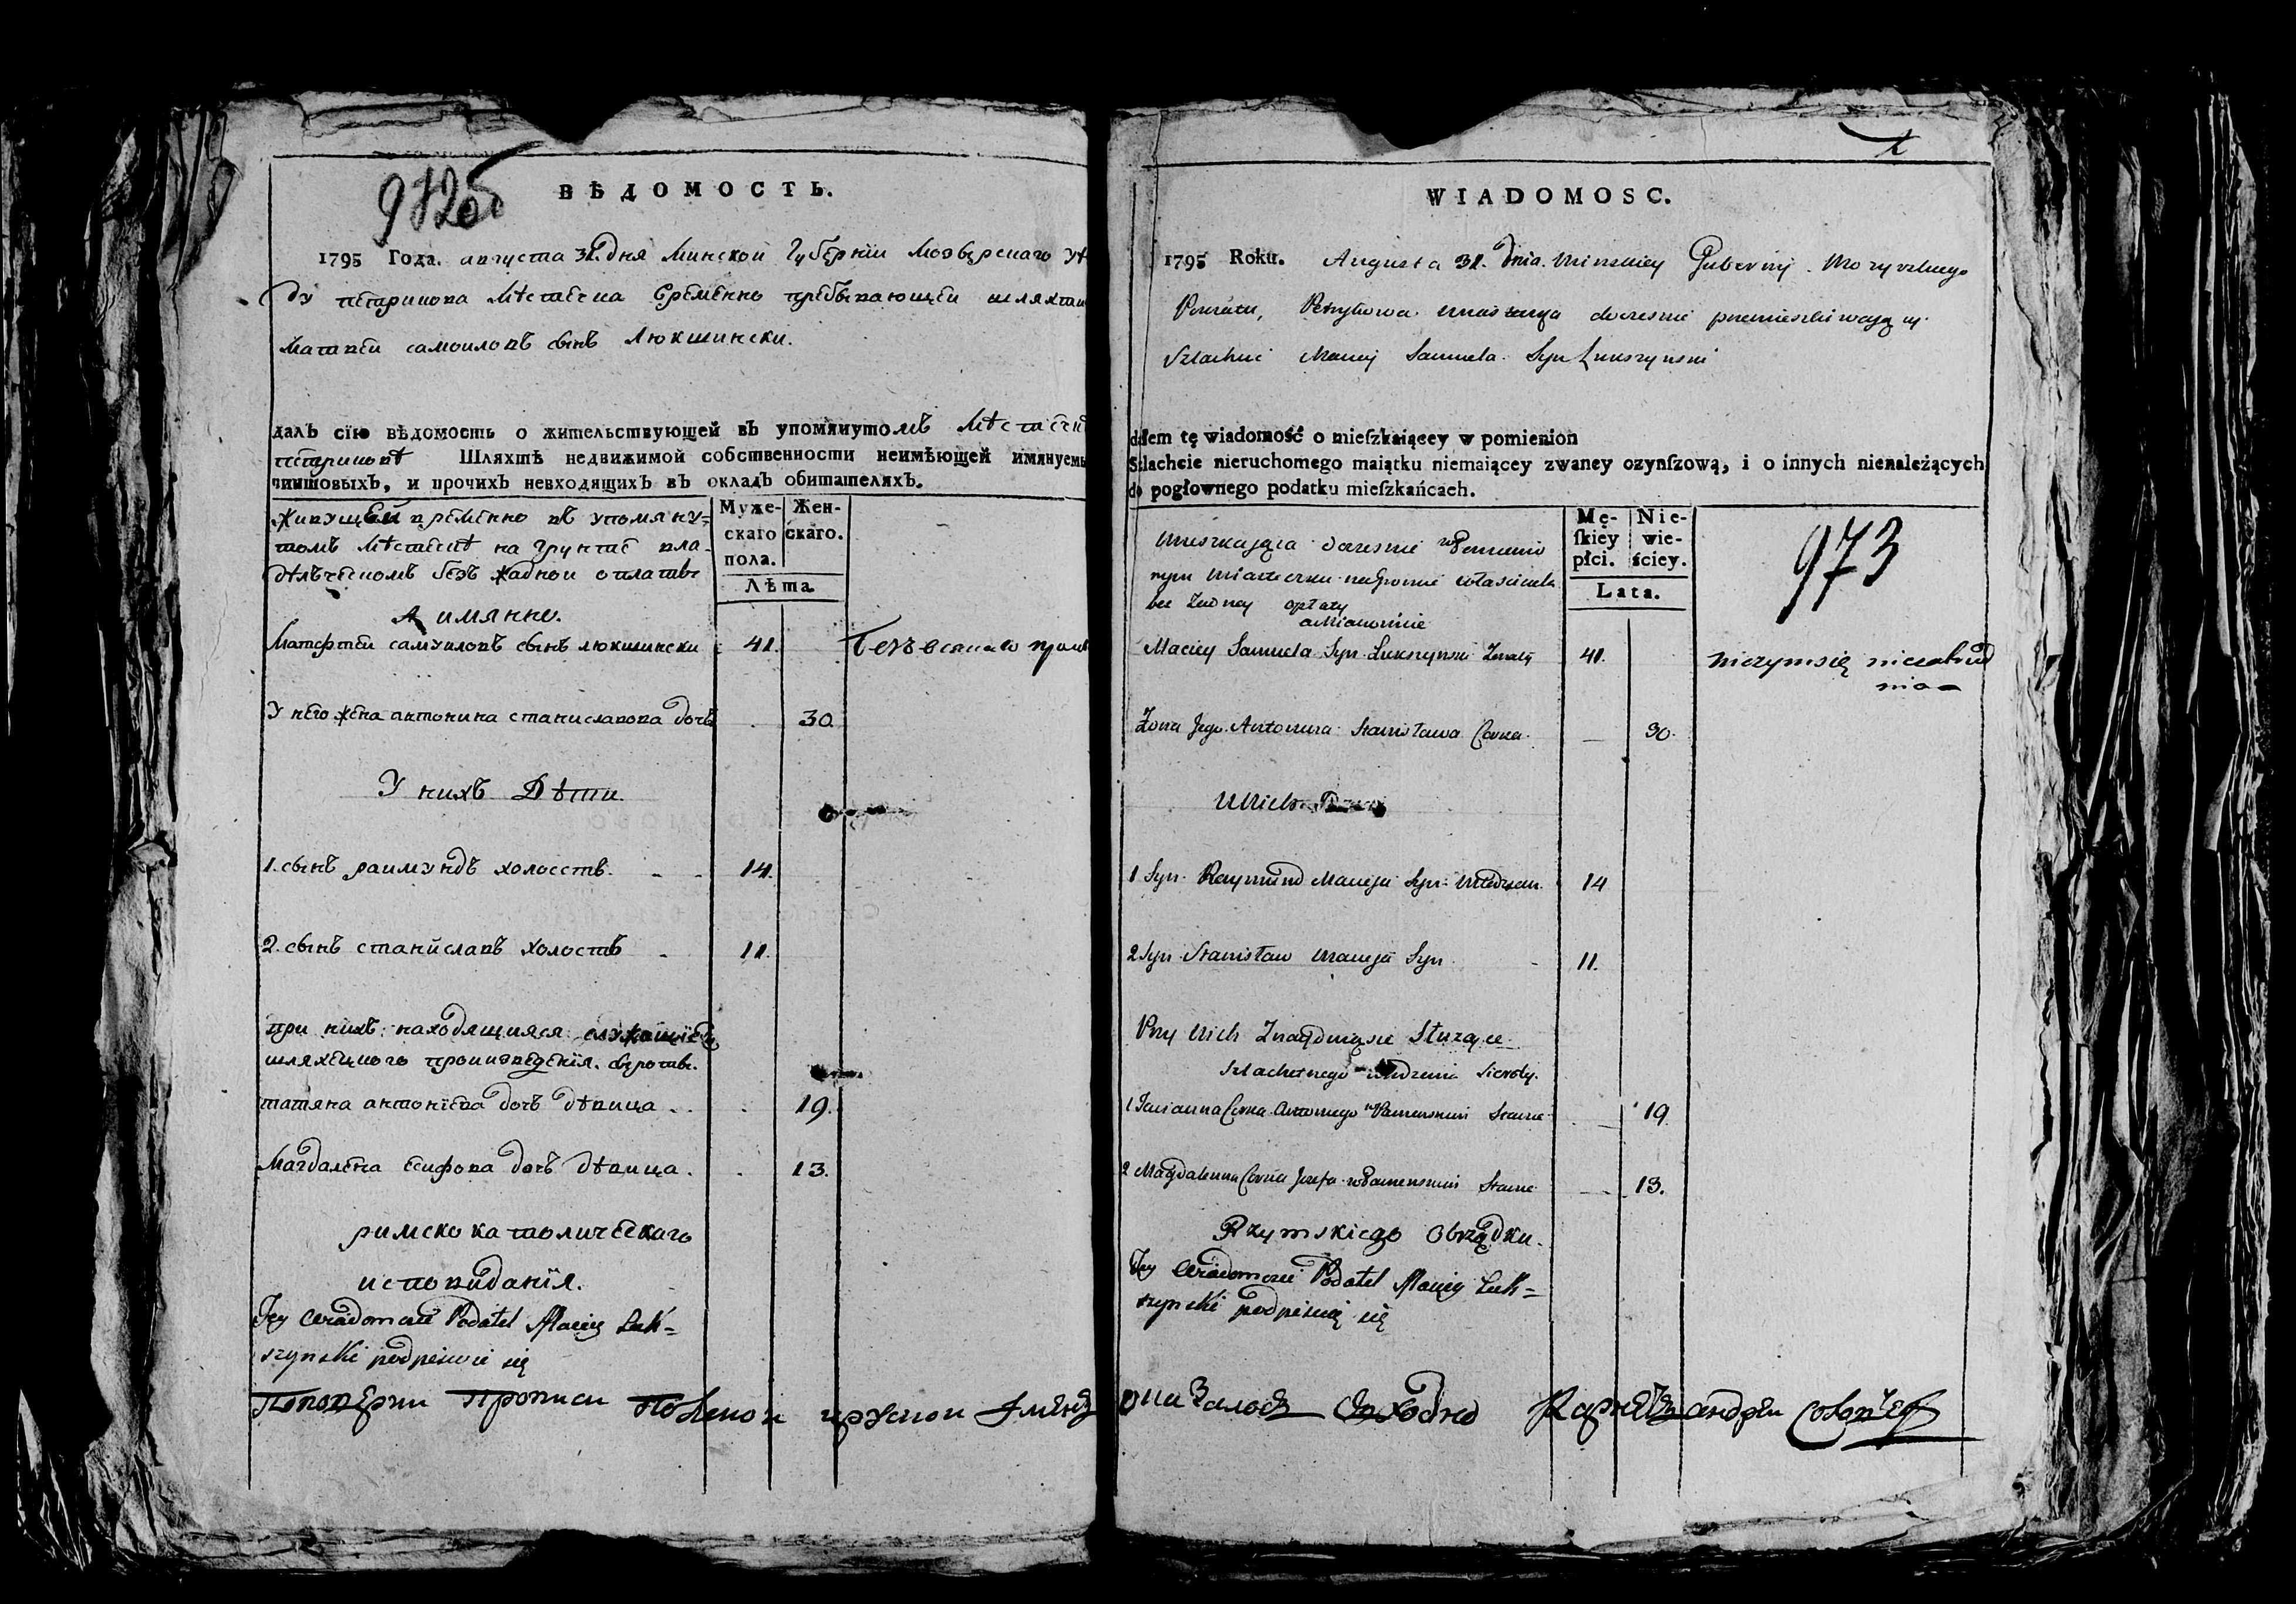 972об
ВѢДОМОСТЬ.
1795 Года. августа 31. дня Минской Губернїи Мозырскаго уѣ
ду петрикова Мѣстечка временно пребывающей шляхтич
Матвей самоиловъ сынъ Люкшински.
далъ сїю вѣдомость о жительствующей въ упомянутомъ Мѣстечкѣ
петриковѣ Шляхтѣ недвижимой собственности неимѣющей имянуемы
чиншовыхъ, и прочихъ невходящихъ въ окладъ обитателяхъ.
Муже-скаго пола. Жен-скаго.
Лѣта.
живущей временно въ упомяну=
томъ Мѣстечкѣ на грунтѣ вла-
дѣлческомъ безъ жадной оплаты
А имянно.
Матфтей самуиловъ сынъ люкшински 41. безъ всякаго
У него жена антонина станиславова дочъ 30
У нихъ Дѣти.
1. сынъ раимундъ холостъ. 14.
2. сынъ станиславъ холостъ 11.
при нихъ находящияся служащїе
шляхецкого произведенїя. сыроты.
татяна антонїева дочъ дѣвица 19.
Магдалена есифова дочъ дѣвица. 13.
римско католическаго
исповиданїя.
Tey Wiadomosci Podatel Maciey Łuk=
szynski podpisuie się
1
WIADOMOSC.
1795 Roku. Augusta 31. Dnia. Minskiey Gubernij. Mozyrskiego
Powiatu, Petrykowa Miasteczka docześnie przemieszkiwaiąc y.
Szlachcic Maciey Samuela. Syn Łukszynski
dałem tę wiadomość o mieſzkaiącey w pomienion
Szlachcie nieruchomego maiątku niemaiącey zwaney czynſzową, i o innych nienależących
do pogłownego podatku mieſzkańcach.
Mę-ſkiey płci. Nie-wie-ściey.
Lata.
973
Mieszkająca docześnie w Pomienio
nym Miasteczku na Gruncie własciciela
bez Żadney opłaty
a Mianowicie
Maciey Samuela Syn Łukszynski Żonaty 41. niczym się niezatrud
nia
Żona Jego Antonina Stanisława Corka. 30.
U Nich
1 Syn. Raymund Macieja Syn. 14
2 Syn. Stanisław Macieja Syn 11.
Przy Nich Znaydujące się Służące
Szlachetnego Sieroty.
1 Corka Antoniego w Panienskim Stanie 19
2 Magdalenna Corka Jozefa w Panienskim Stanie 13.
Rzymskiego Obrządku.
Tey Wiadomosci Podatel Maciey Łuk=
szynski podpisuię się